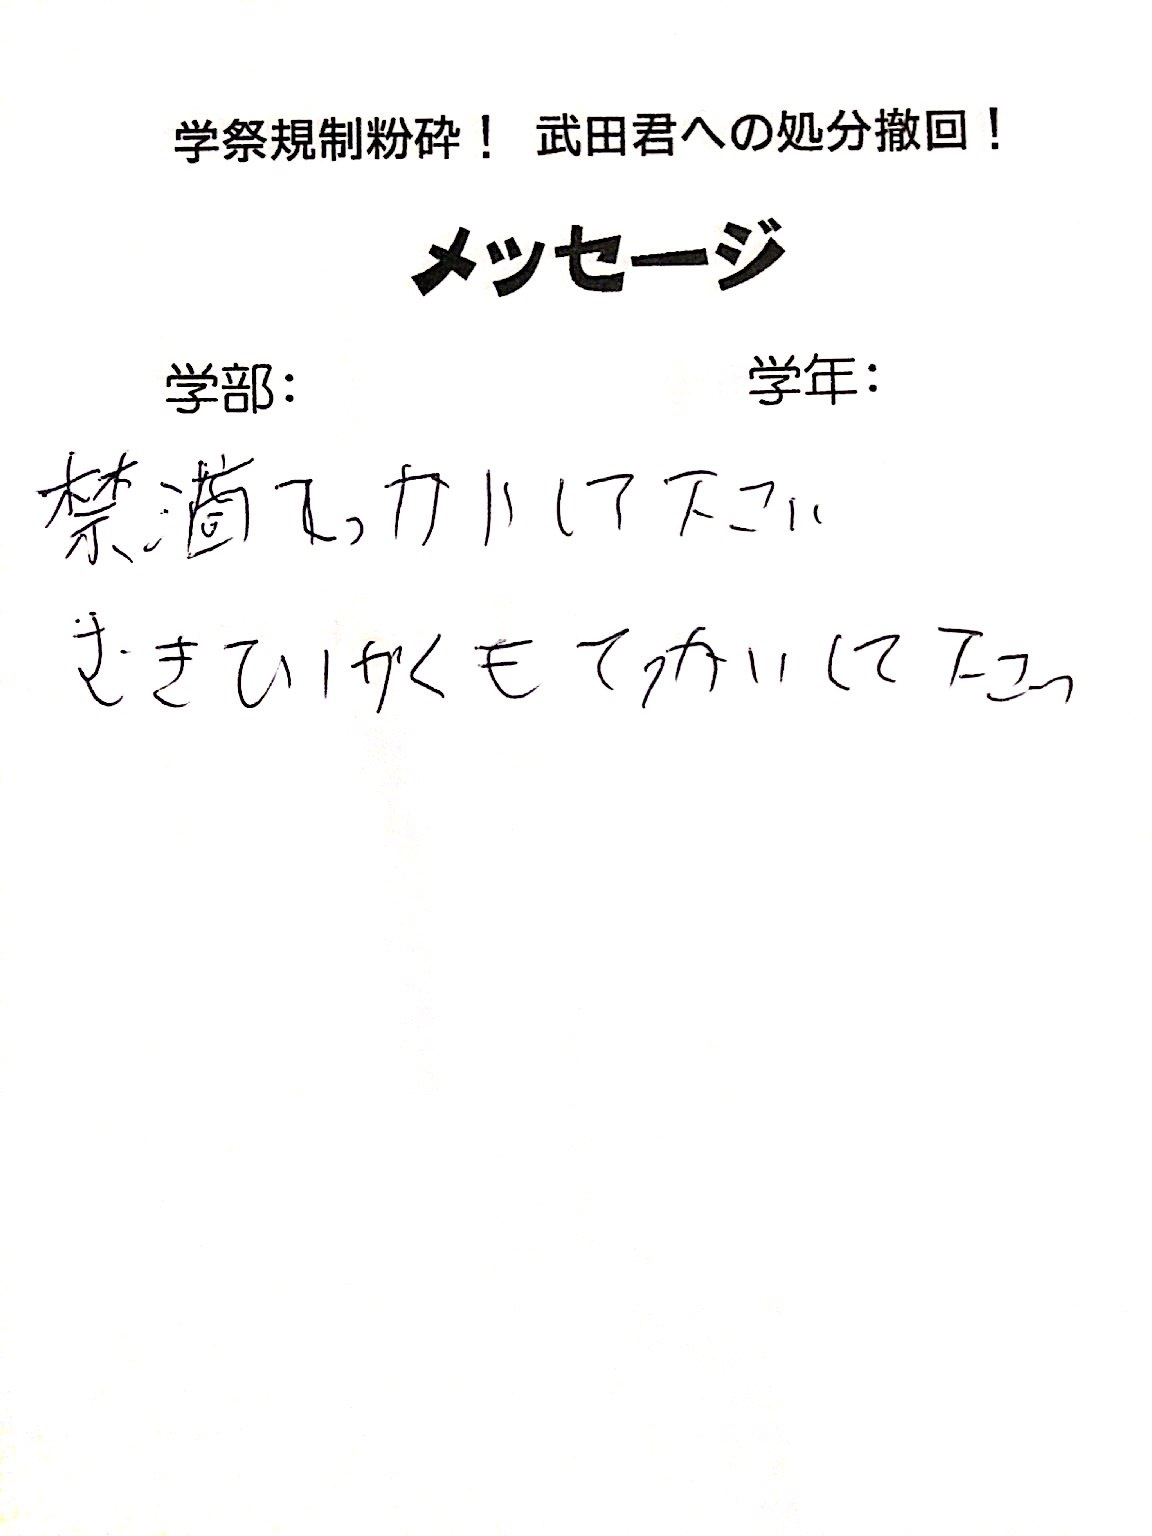 学祭規制粉砕! 武田君への処分撤回!
メッセージ
学部: 学年:
禁酒てっかいして下さい
むきていがくもてっかいして下さい